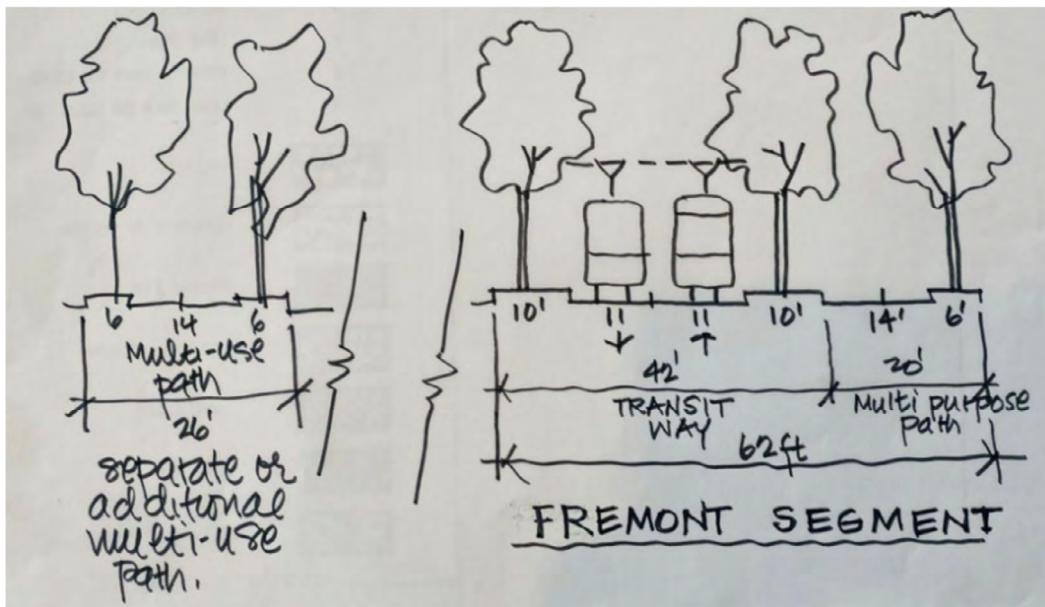 6 14 6
Multi-use
path
26'
separate or
additional
multi-use
path.
10' 11 11 10' 14' 6'
42' 20'
TRANSIT
WAY
Multi purpose
path
62ft
FREMONT SEGMENT